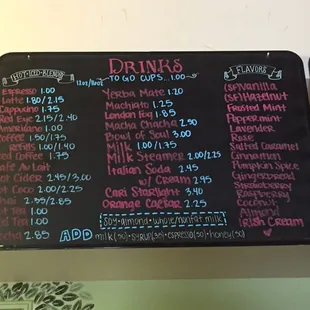 DRINKS
HOT-ICED-BLENDED
12oz/16oz
TO GO CUPS... 1.00
Espresso 1.00
Latte 1.80/2.15
Cappuccino 1.75
Red Eye 2.15/2.40
Americano 1.00
Coffee 1.50/1.75
Refills 1.00/1.40
Iced Coffee 1.75
Cafe Au Lait
Hot Cider 2.45/3.00
Hot Coco 2.00/2.25
Chai 2.35/2.85
Hot Tea 1.00
Iced Tea 1.00
Mocha 2.85
Yerba Mate 1.20
Machiato 1.25
London Fog 1.85
Macha Chacha 2.50
Bowl of Soul 3.00
Milk 1.00/1.35
Milk Steamer 2.00/2.25
Italian Soda 2.45
w/ Cream 2.95
Cari Starlight 3.40
Orange Caesar 2.25
soy·almond·whole/nonfat milk
ADD milk(50)·syrup(35)·espresso(50)·honey(50)
FLAVORS
(SF)Vanilla
(SF)Hazelnut
Frosted Mint
Peppermint
Lavender
Rose
Salted Caramel
Cinnamon
Pumpkin Spice
Gingerbread
Strawberry
Raspberry
Coconut
Almond
Irish Cream